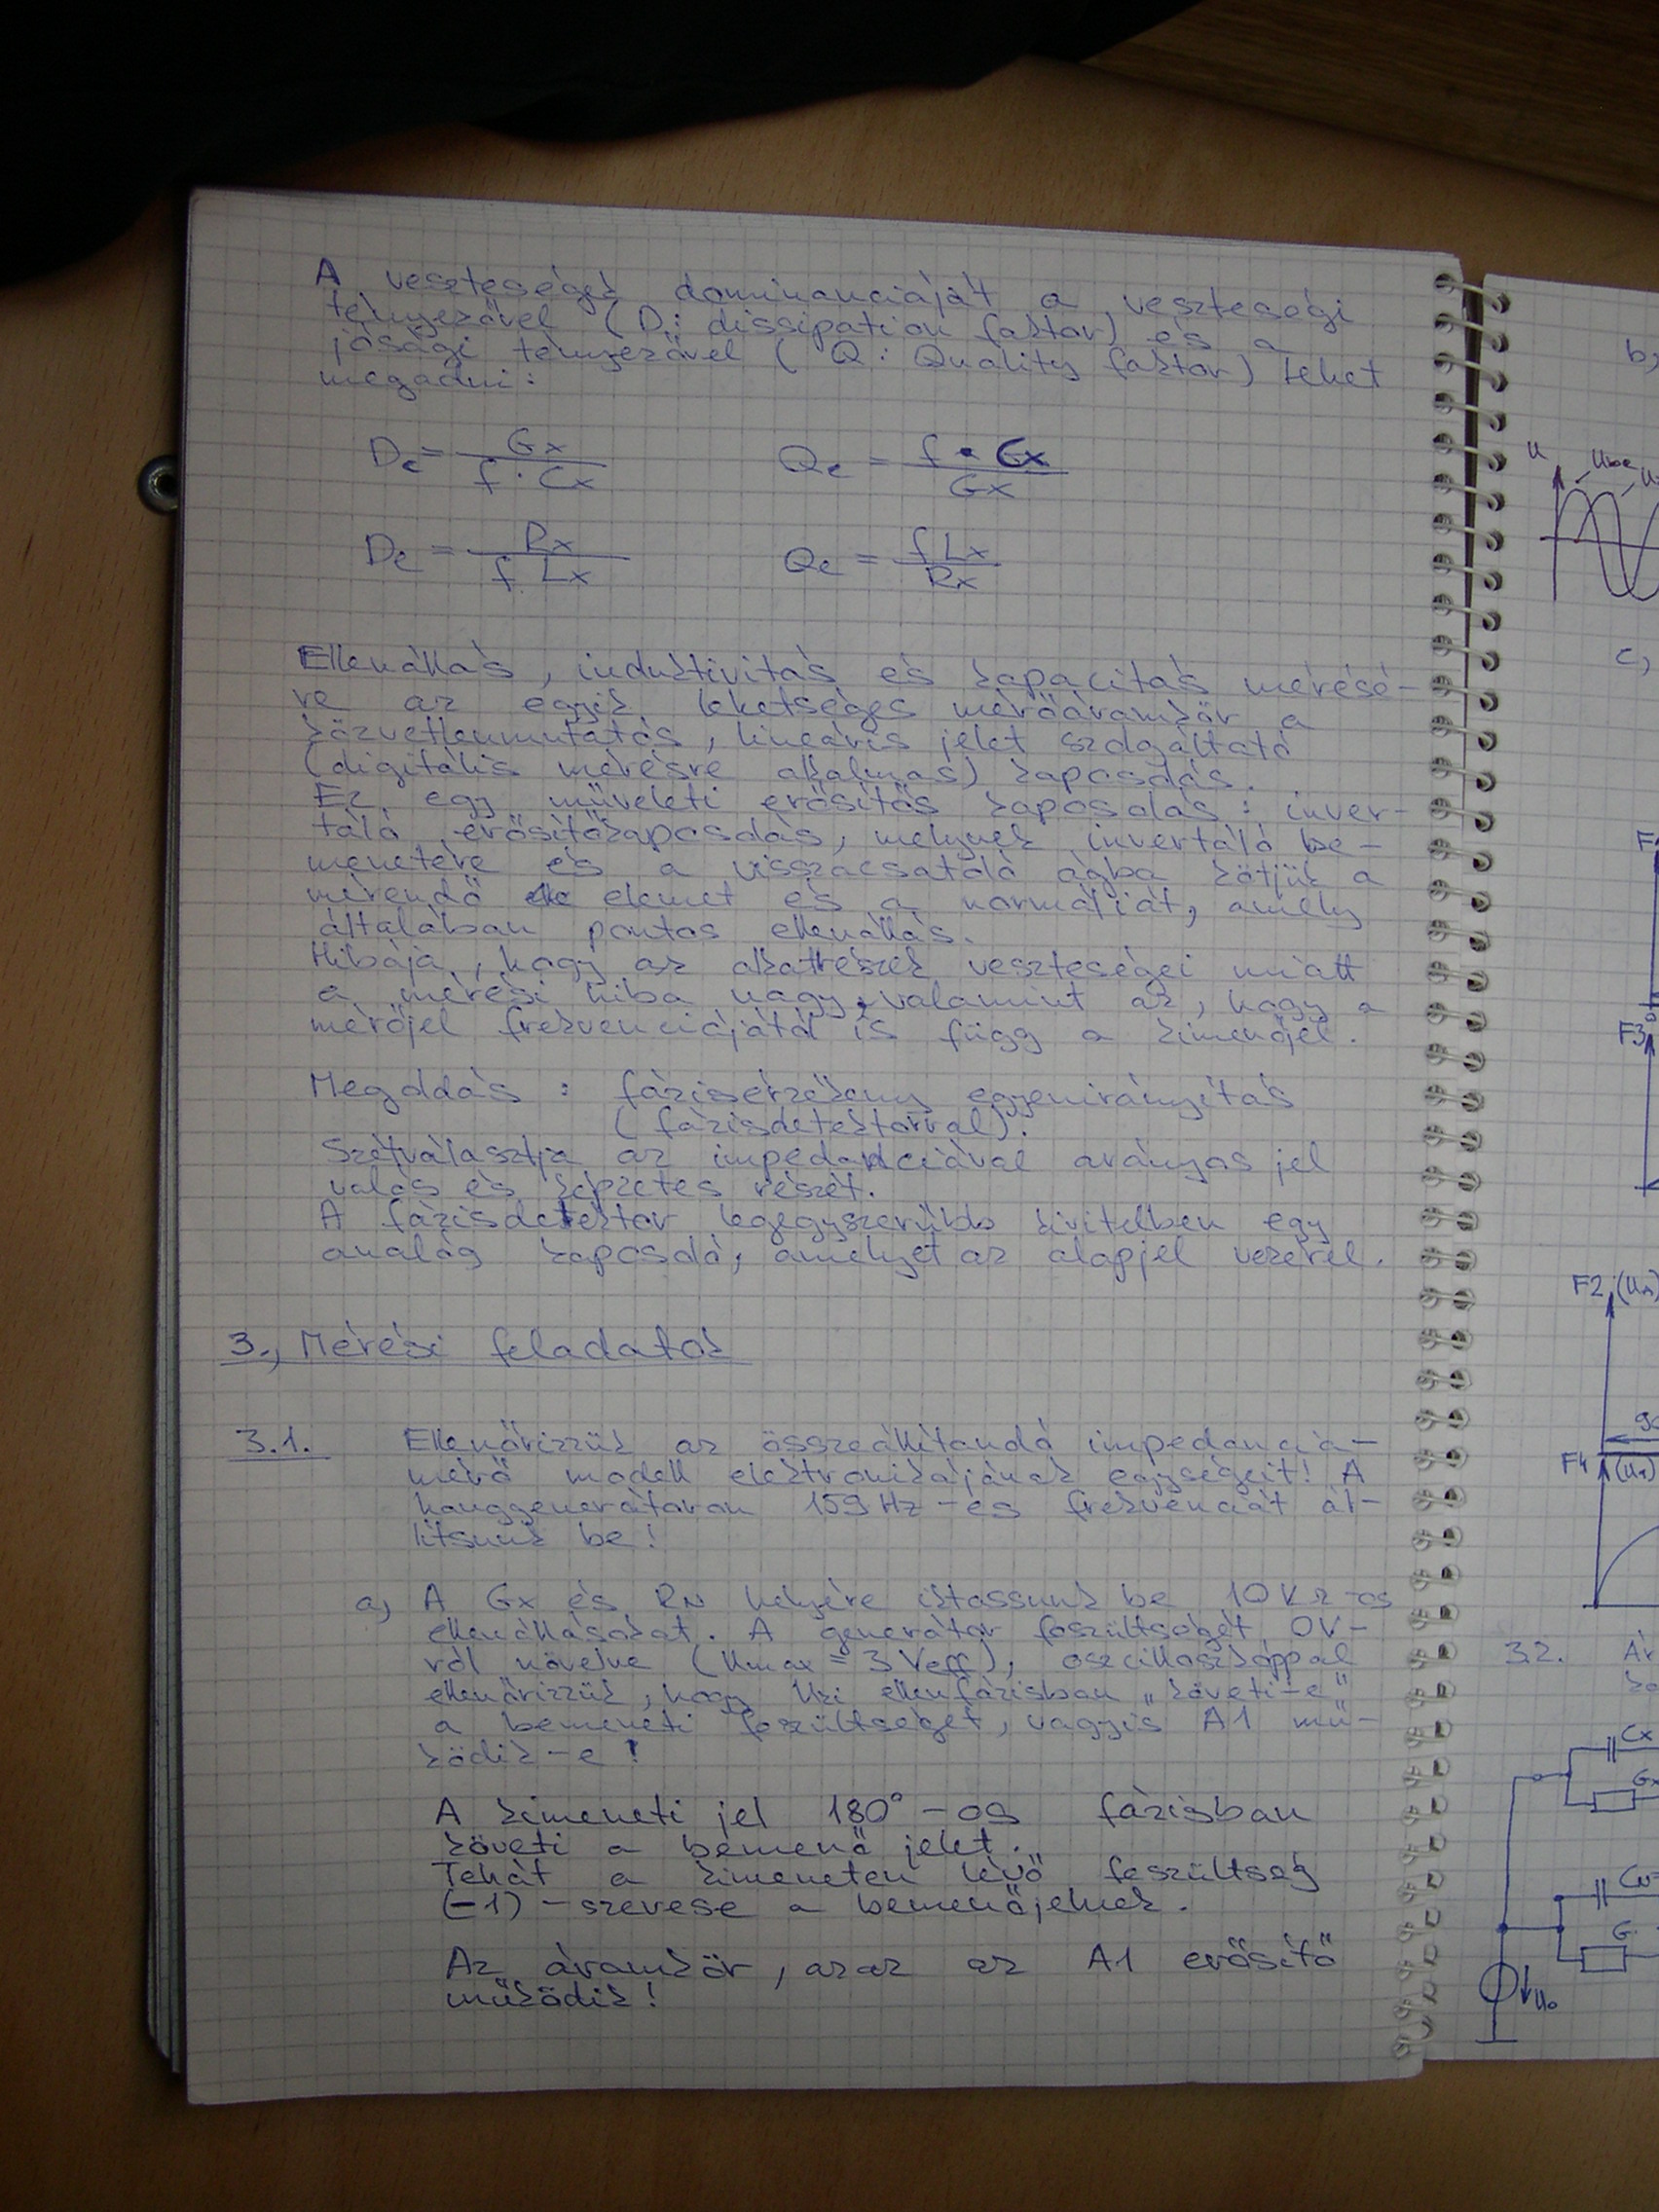 A veszteségek dominanciáját a veszteségi
tényezővel (D: dissipation faktor) és a
jósági tényezővel (Q: Quality faktor) lehet
megadni:
Dc = Gx / f · Cx
Qc = f · Cx / Gx
Dc = Rx / f Lx
Qc = f Lx / Rx
Ellenállás, induktivitás és kapacitás mérésé-
re az egyik lehetséges mérőáramkör a
közvetlenmutatós, lineáris jelet szolgáltató
(digitális mérésre alkalmas) kapcsolás.
Ez egy műveleti erősítős kapcsolás: inver-
táló erősítőkapcsolás, melynek invertáló be-
menetére és a visszacsatoló ágba kötjük a
mérendő elemet és a normáliát, amely
általában pontos ellenállás.
Hibája, hogy az alkatrészek veszteségei miatt
a mérési hiba nagy, valamint az, hogy a
mérőjel frekvenciájától is függ a kimenőjel.
Megoldás: fázisérzékeny egyenirányítás
(fázisdetektorral).
Szétválasztja az impedanciával arányos jel
valós és képzetes részét.
A fázisdetektor legegyszerűbb kivitelben egy
analóg kapcsoló, amelyet az alapjel vezérel.
3., Mérési feladatok
3.1. Ellenőrizzük az összeállítandó impedancia-
mérő modell elektronikájának egységeit! A
hanggenerátoron 159 Hz-es frekvenciát ál-
lítsunk be!
a, A Gx és RN helyére iktassunk be 10 KΩ-os
ellenállásokat. A generátor feszültségét 0V-
ról növelve (Umax = 3 Veff), oszcilloszkóppal
ellenőrizzük, hogy Uki ellenfázisban „követi-e"
a bemeneti feszültséget, vagyis A1 mű-
ködik-e!
A kimeneti jel 180°-os fázisban
követi a bemenő jelet.
Tehát a kimeneten lévő feszültség
(-1)-szerese a bemenőjelnek.
Az áramkör, azaz az A1 erősítő
működik!
b,
U
c,
F3
F2 (UA)
F4
3.2.
Cx
Gx
G
U0